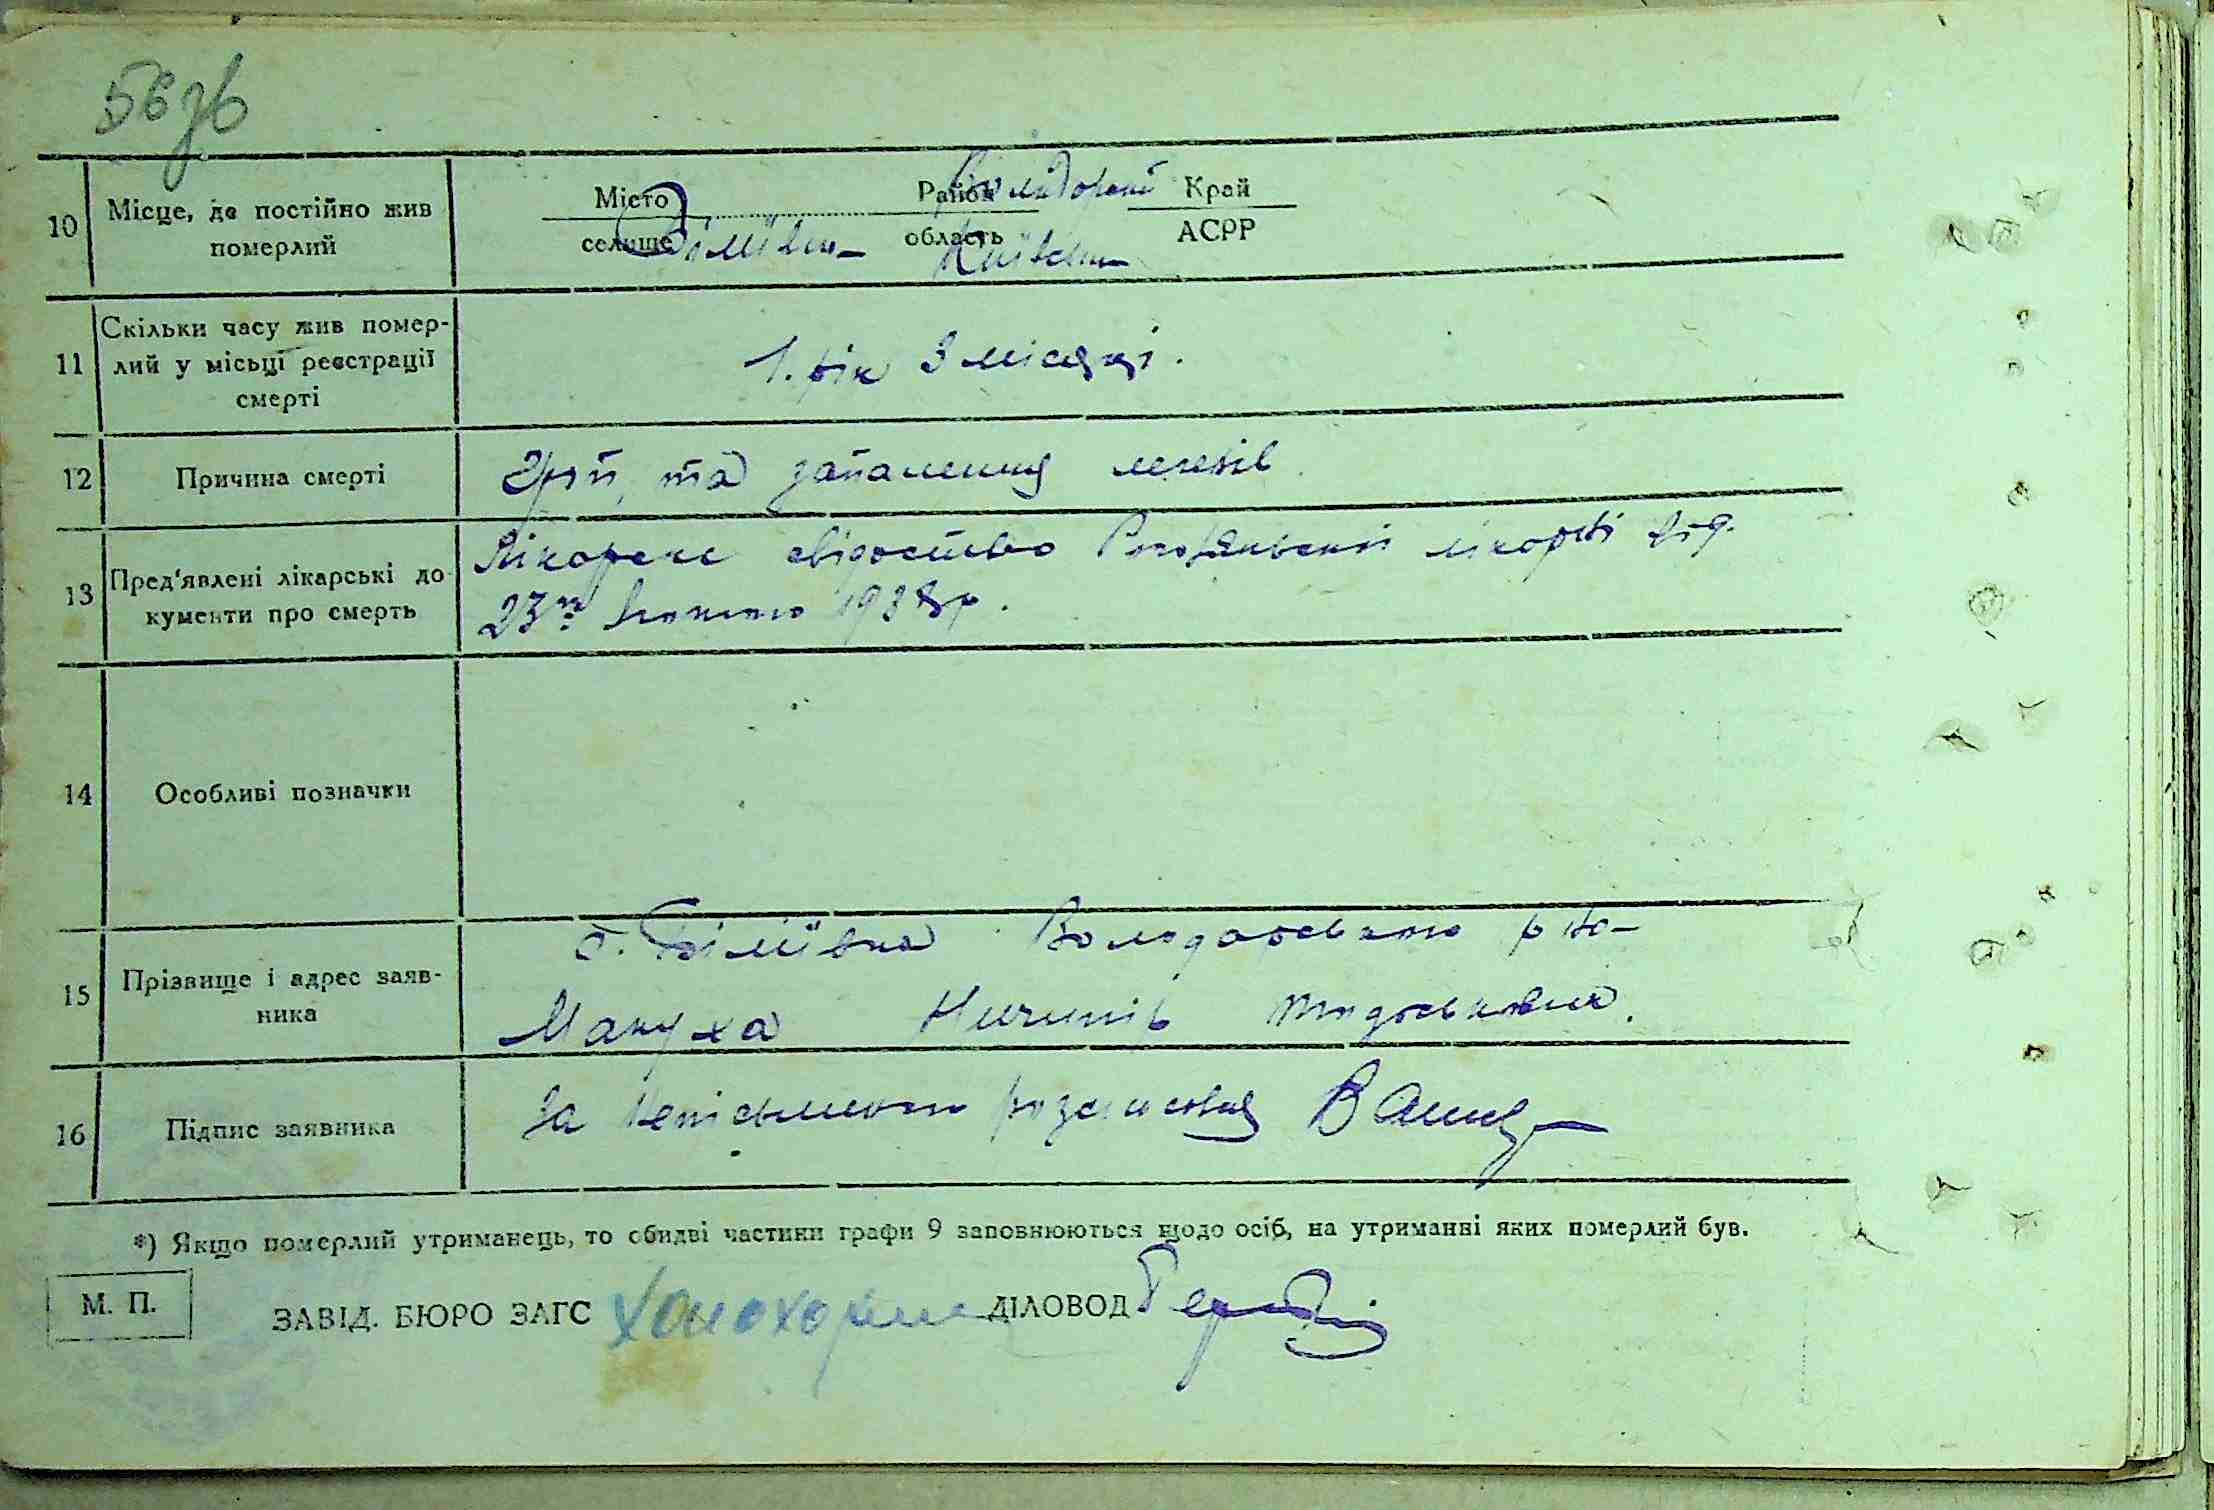 56зв
10 Місце, де постійно жив
померлий
Місто
селище
Біліївка
Район Володарський
область Київська
Край
АСРР
11 Скільки часу жив помер-
лий у місьці реєстрації
смерті
1. рік 3 місяці.
12 Причина смерті
Гріп, та запалення легенів.
13 Пред'явлені лікарські до
кументи про смерть
Лікарське свідоцтво лікарні від
23го лютого 1938р.
14 Особливі позначки
15 Прізвище і адрес заяв-
ника
с. Біліївка Володарського р-ну
Мануха Ничипір Тодоськович.
16 Підпис заявника
За неписьменого розписався
*) Якщо померлий утриманець, то обидві частини графи 9 заповнюються щодо осіб, на утриманні яких померлий був.
М. П.
ЗАВІД. БЮРО ЗАГС
ДІЛОВОД